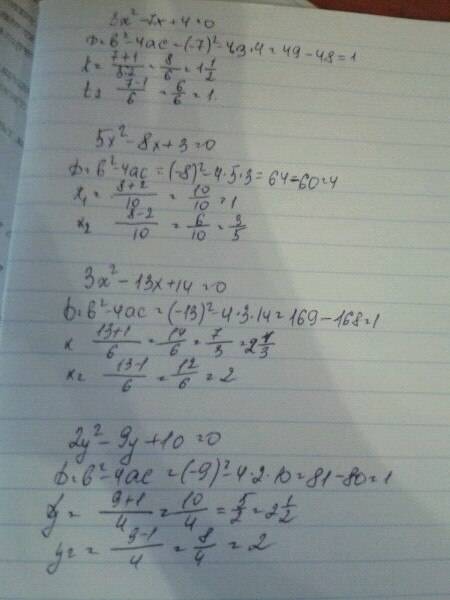 3x²-7x+4=0
D=b²-4ac=(-7)²-4·3·4=49-48=1
x= 7+1/3·2 = 8/6 = 1 1/2
x2 7-1/6 = 6/6 = 1.
5x²-8x+3=0
D=b²-4ac=(-8)²-4·5·3=64-60=4
x₁= 8+2/10 = 10/10 = 1
x₂ 8-2/10 = 6/10 = 3/5
3x²-13x+14=0
D=b²-4ac=(-13)²-4·3·14=169-168=1
x 13+1/6 = 14/6 = 7/3 = 2 1/3
x₂ 13-1/6 = 12/6 = 2
2y²-9y+10=0
D=b²-4ac=(-9)²-4·2·10=81-80=1
y= 9+1/4 = 10/4 = 5/2 = 2 1/2
y₂= 9-1/4 = 8/4 = 2